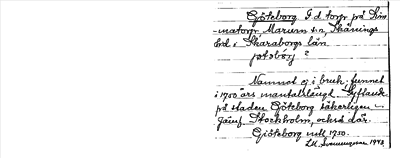 Göteborg f.d torp på Sim-
matorp. Marum sn, Skånings
hd i Skaraborgs län.
jøtəbórj ?
Namnet ej i bruk, funnet
i 1750 års mantalslängd. Syftande
på staden Göteborg säkerligen.
Jämf. Stockholm, också där.
Giöteborg mtl 1750.
1943